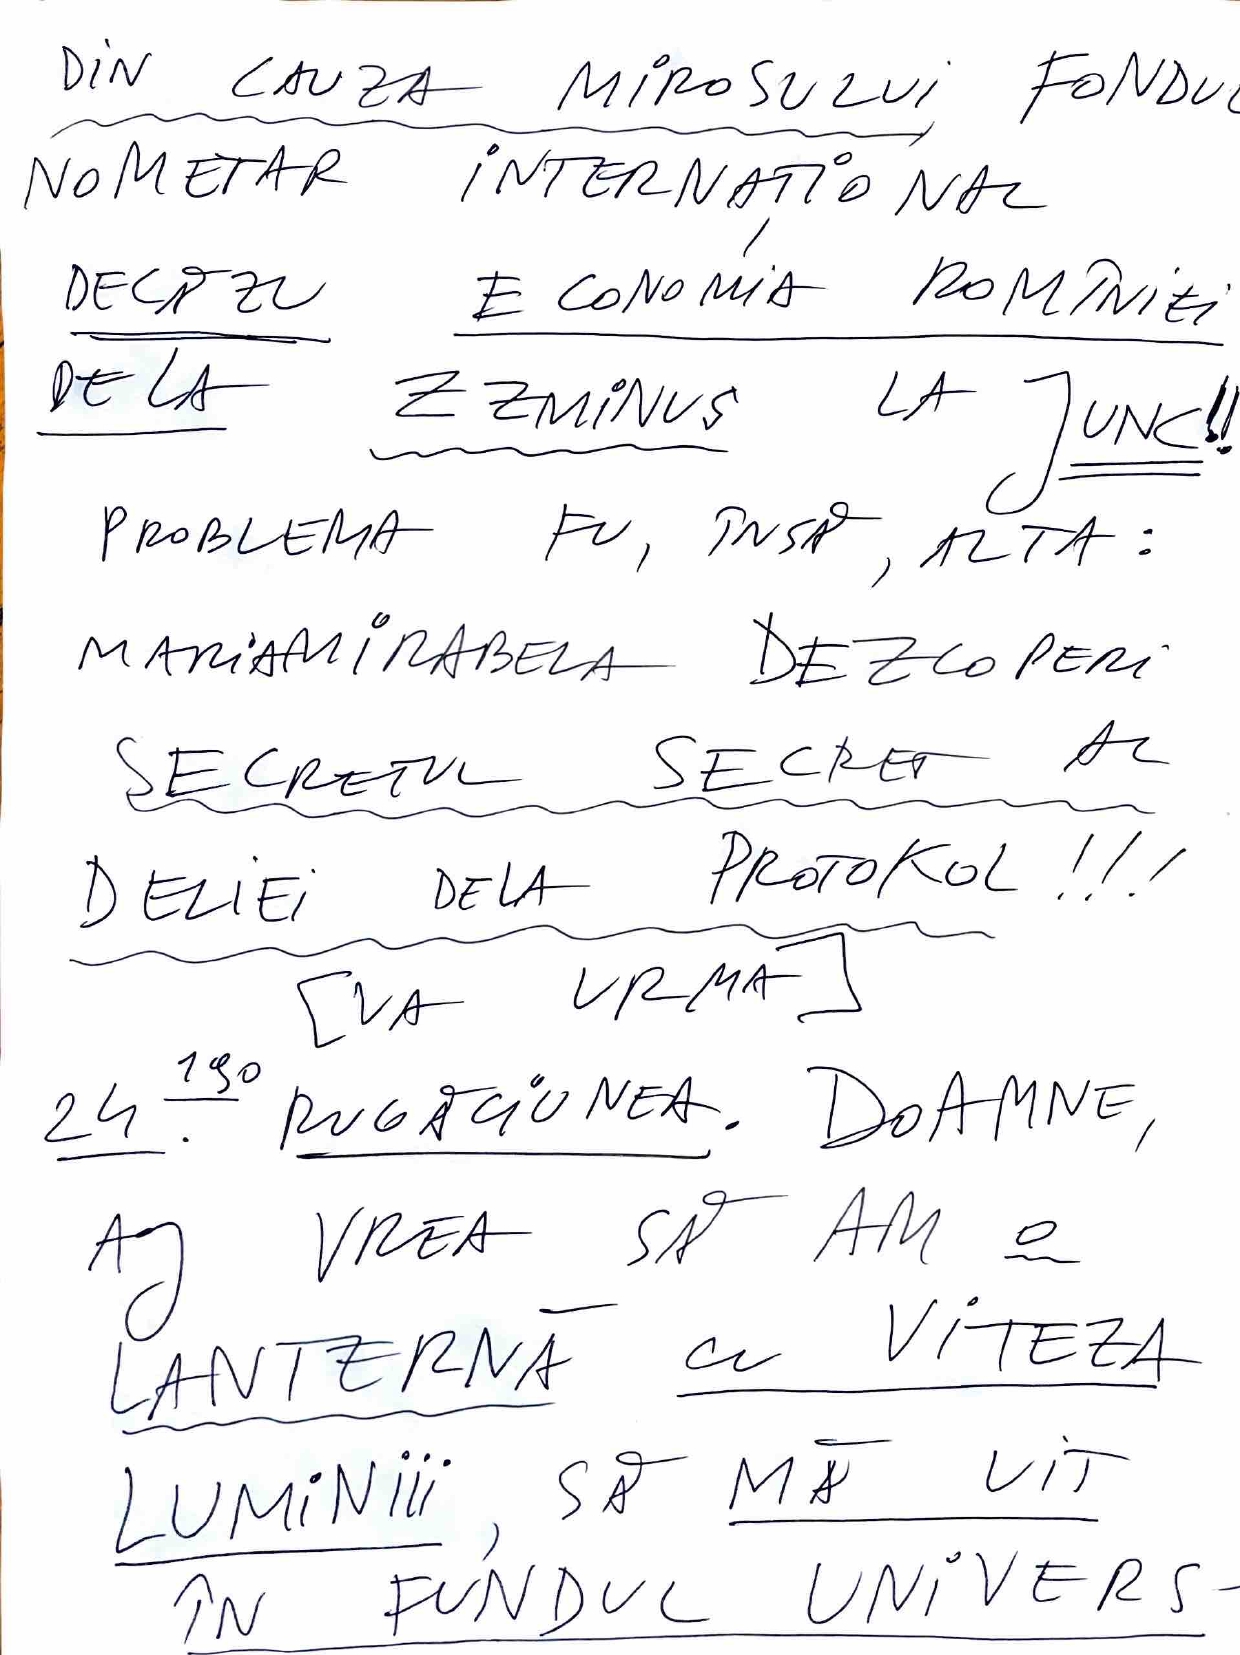 DIN CAUZA MIROSULUI FONDUL
NOMETAR INTERNAȚIONAL
DECĂZU ECONOMIA ROMÎNIEI
DELA ZZMINUS LA JUNC!!
PROBLEMA FU, ÎNSĂ, ALTA:
MARIAMIRABELA DEZCOPERI
SECRETUL SECRET AL
DELIEI DELA PROTOKOL!!!
[VA URMA]
24.190 RUGĂCIUNEA. DOAMNE,
AȘ VREA SĂ AM O
LANTERNĂ CU VITEZA
LUMINIII, SĂ MĂ UIT
ÎN FUNDUL UNIVERS-